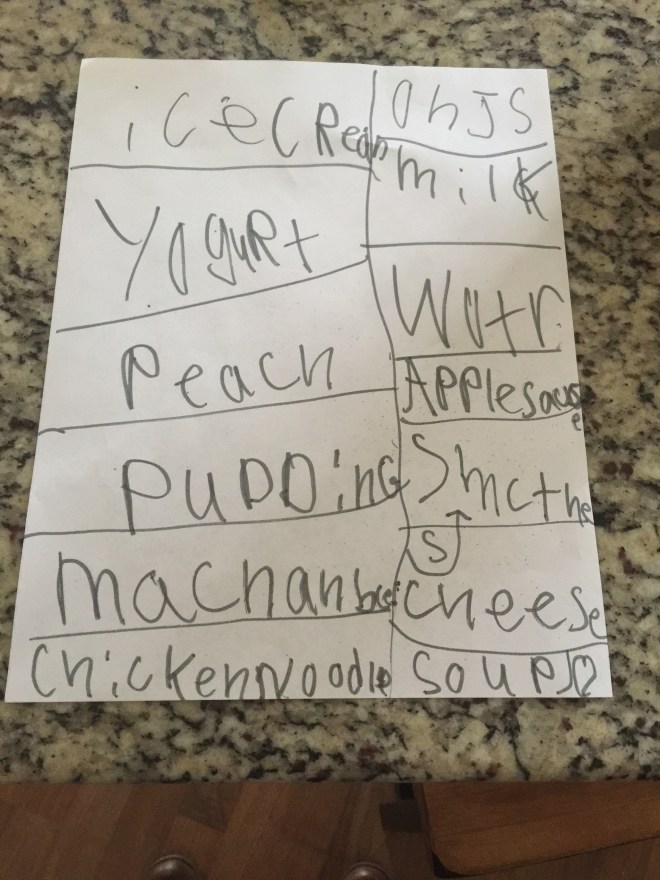 icecReam
OhJS
milk
YoguRt
Watr
Peach
Applesause
PUDDiNG
Smcthe
S
machan
cheese
ChickenNoodle soup